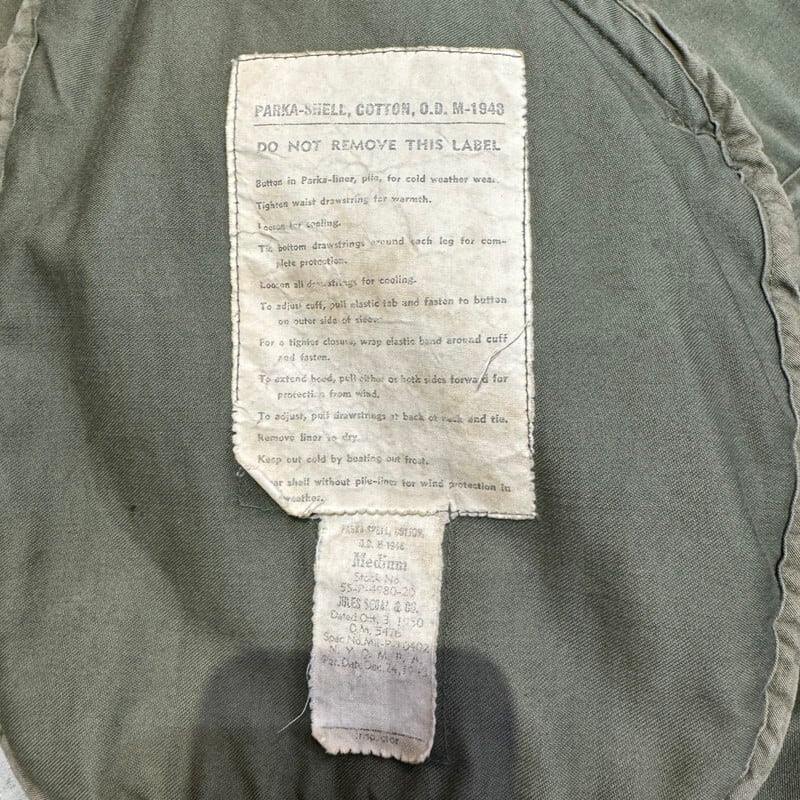 PARKA-SHELL, COTTON, O.D. M-1948
DO NOT REMOVE THIS LABEL
Button in Parka-liner, pile, for cold weather wear.
Tighten waist drawstring for warmth.
Loosen for cooling.
Tie bottom drawstrings around each leg for com-
plete protection.
Loosen all drawstrings for cooling.
To adjust cuff, pull elastic tab and fasten to button
on outer side of sleeve.
For a tighter closure, wrap elastic band around cuff
and fasten.
To extend hood, pull either or both sides forward for
protection from wind.
To adjust, pull drawstrings at back of neck and tie.
Remove liner to dry.
Keep out cold by beating out frost.
shell without pile-liner for wind protection in
weather.
PARKA-SHELL, COTTON,
O.D. M-1948
Medium
Stock No.
55-P-4980-20
JULES & CO.
Dated Oct. 3, 1950
O.M. 5476
Spec No. Mil-P-
N. Y. Q. M. P. A.
Pat. Date Dec. 24,
Inspector